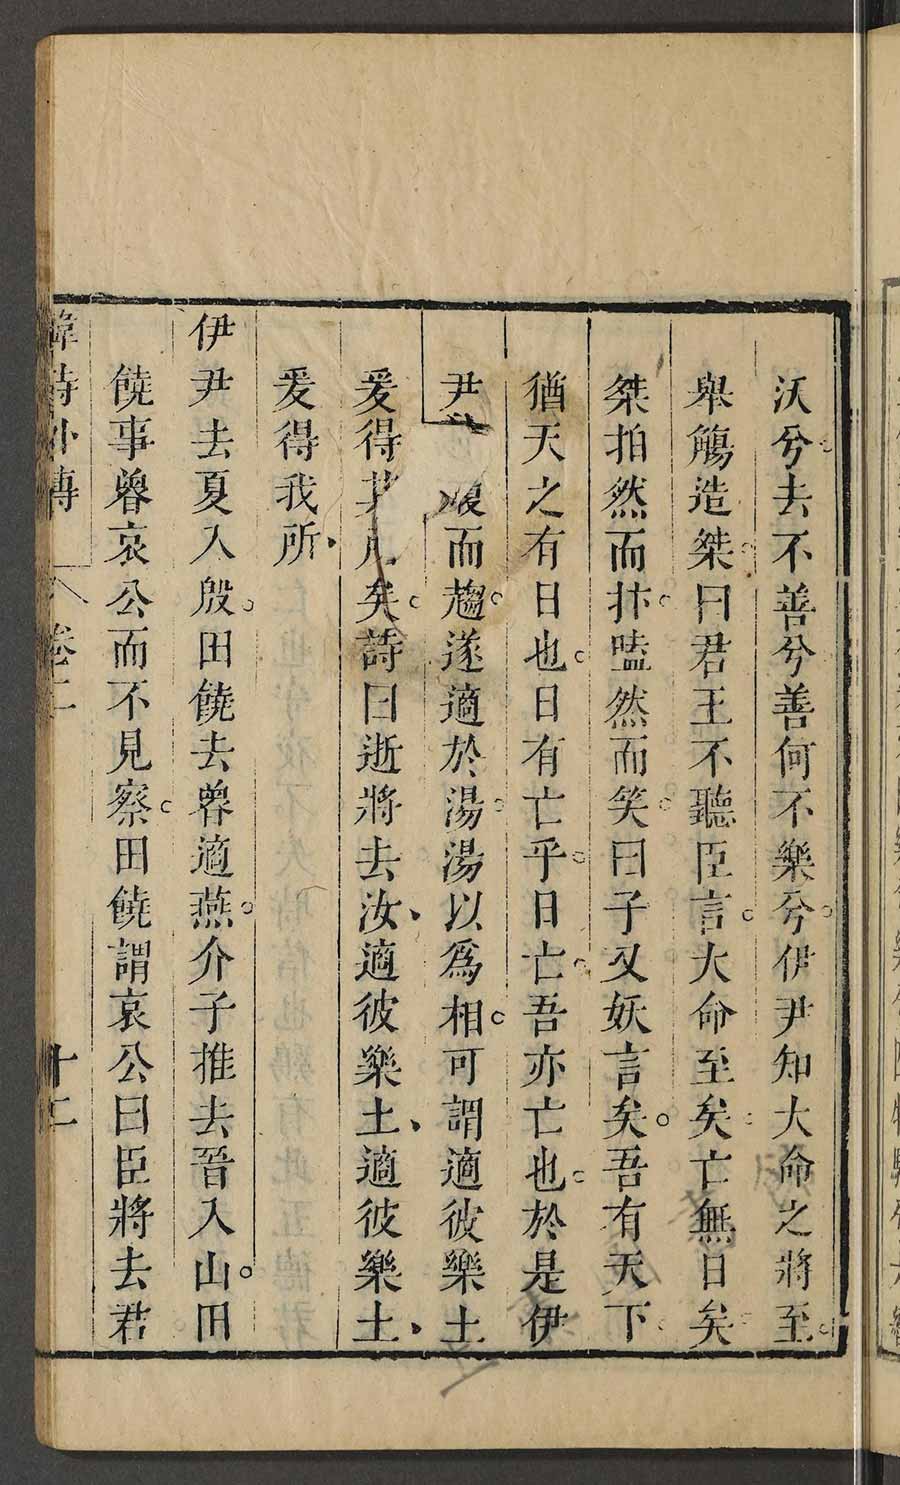 沃兮去不善兮善何不樂兮伊尹知大命之將至
舉觴造桀曰君王不聽臣言大命至矣亡無日矣
桀拍然而抃嗑然而笑曰子又妖言矣吾有天下
猶天之有日也日有亡乎日亡吾亦亡也於是伊
尹 而趨遂適於湯湯以爲相可謂適彼樂土
爰得其所矣詩曰逝將去汝適彼樂土適彼樂土
爰得我所
伊尹去夏入殷田饒去魯適燕介子推去晉入山田
饒事魯哀公而不見察田饒謂哀公曰臣將去君
韓詩外傳 卷二 十二